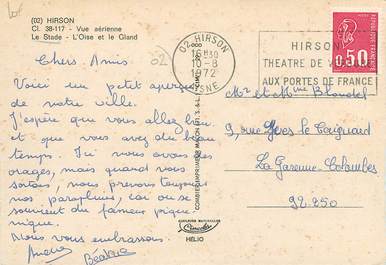 (02) HIRSON
Cl. 38-117 - Vue aérienne
Le Stade - L'Oise et le Gland
Chers Amis
Voici un petit aperçu
de notre ville.
J'espère que vous allez bien
et que vous avez du beau
temps. Ici nous avons des
orages, mais quand nous
sortons, nous prenons toujours
nos parapluies, car on se
souvient du fameux pique-
nique.
Nous vous embrassons.
Béatrice
02
02 HIRSON
16H30
10-8
1972
AISNE
HIRSON
THEATRE DE
AUX PORTES DE FRANCE
0,50
COMBIER IMPRIMEUR MACON
Cimcolor
HÉLIO
Mr et Mme Blondel
9, rue Yves le Coignard
La Garenne-Colombes
92-250